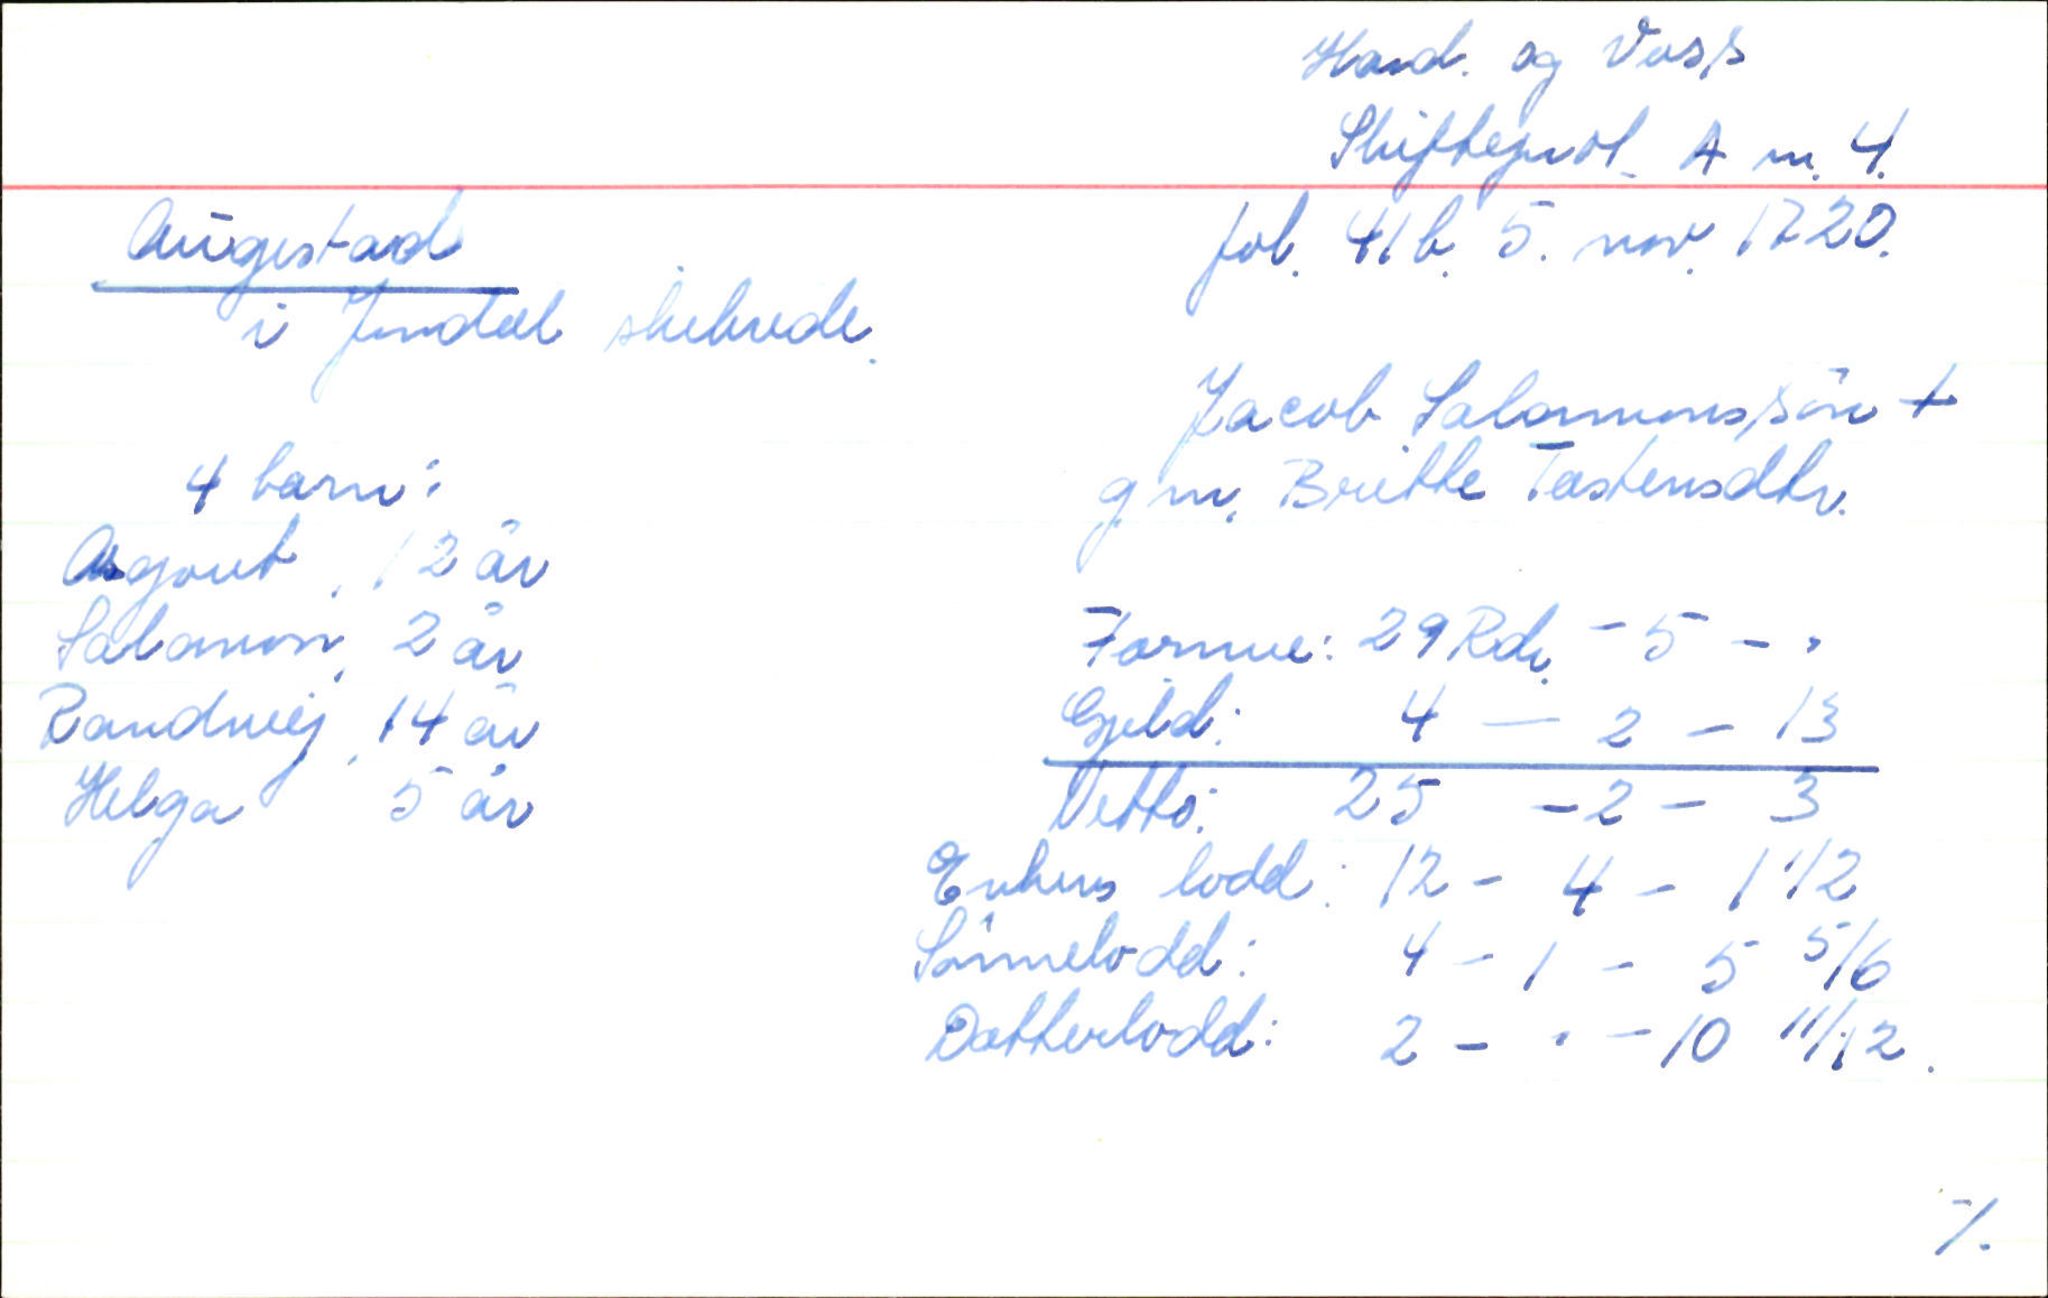 Hard. og Voss
Skifteprot. A nr. 4.
fol. 41b. 5. nov. 1720.
Augestad
i Jondal skibrede.
Jacob Salamonssön +
g.m. Britte Tostensdtr.
4 barn:
Asgout, 12 år
Salamon, 2 år
Randwej, 14 år
Helga 5 år
Formue: 29 Rdr. - 5 - .
Gjeld: 4 - 2 - 13
Netto: 25 - 2 - 3
Enkens lodd: 12 - 4 - 1 1/2
Sönnelodd: 4 - 1 - 5 5/6
Dotterlodd: 2 - . - 10 11/12.